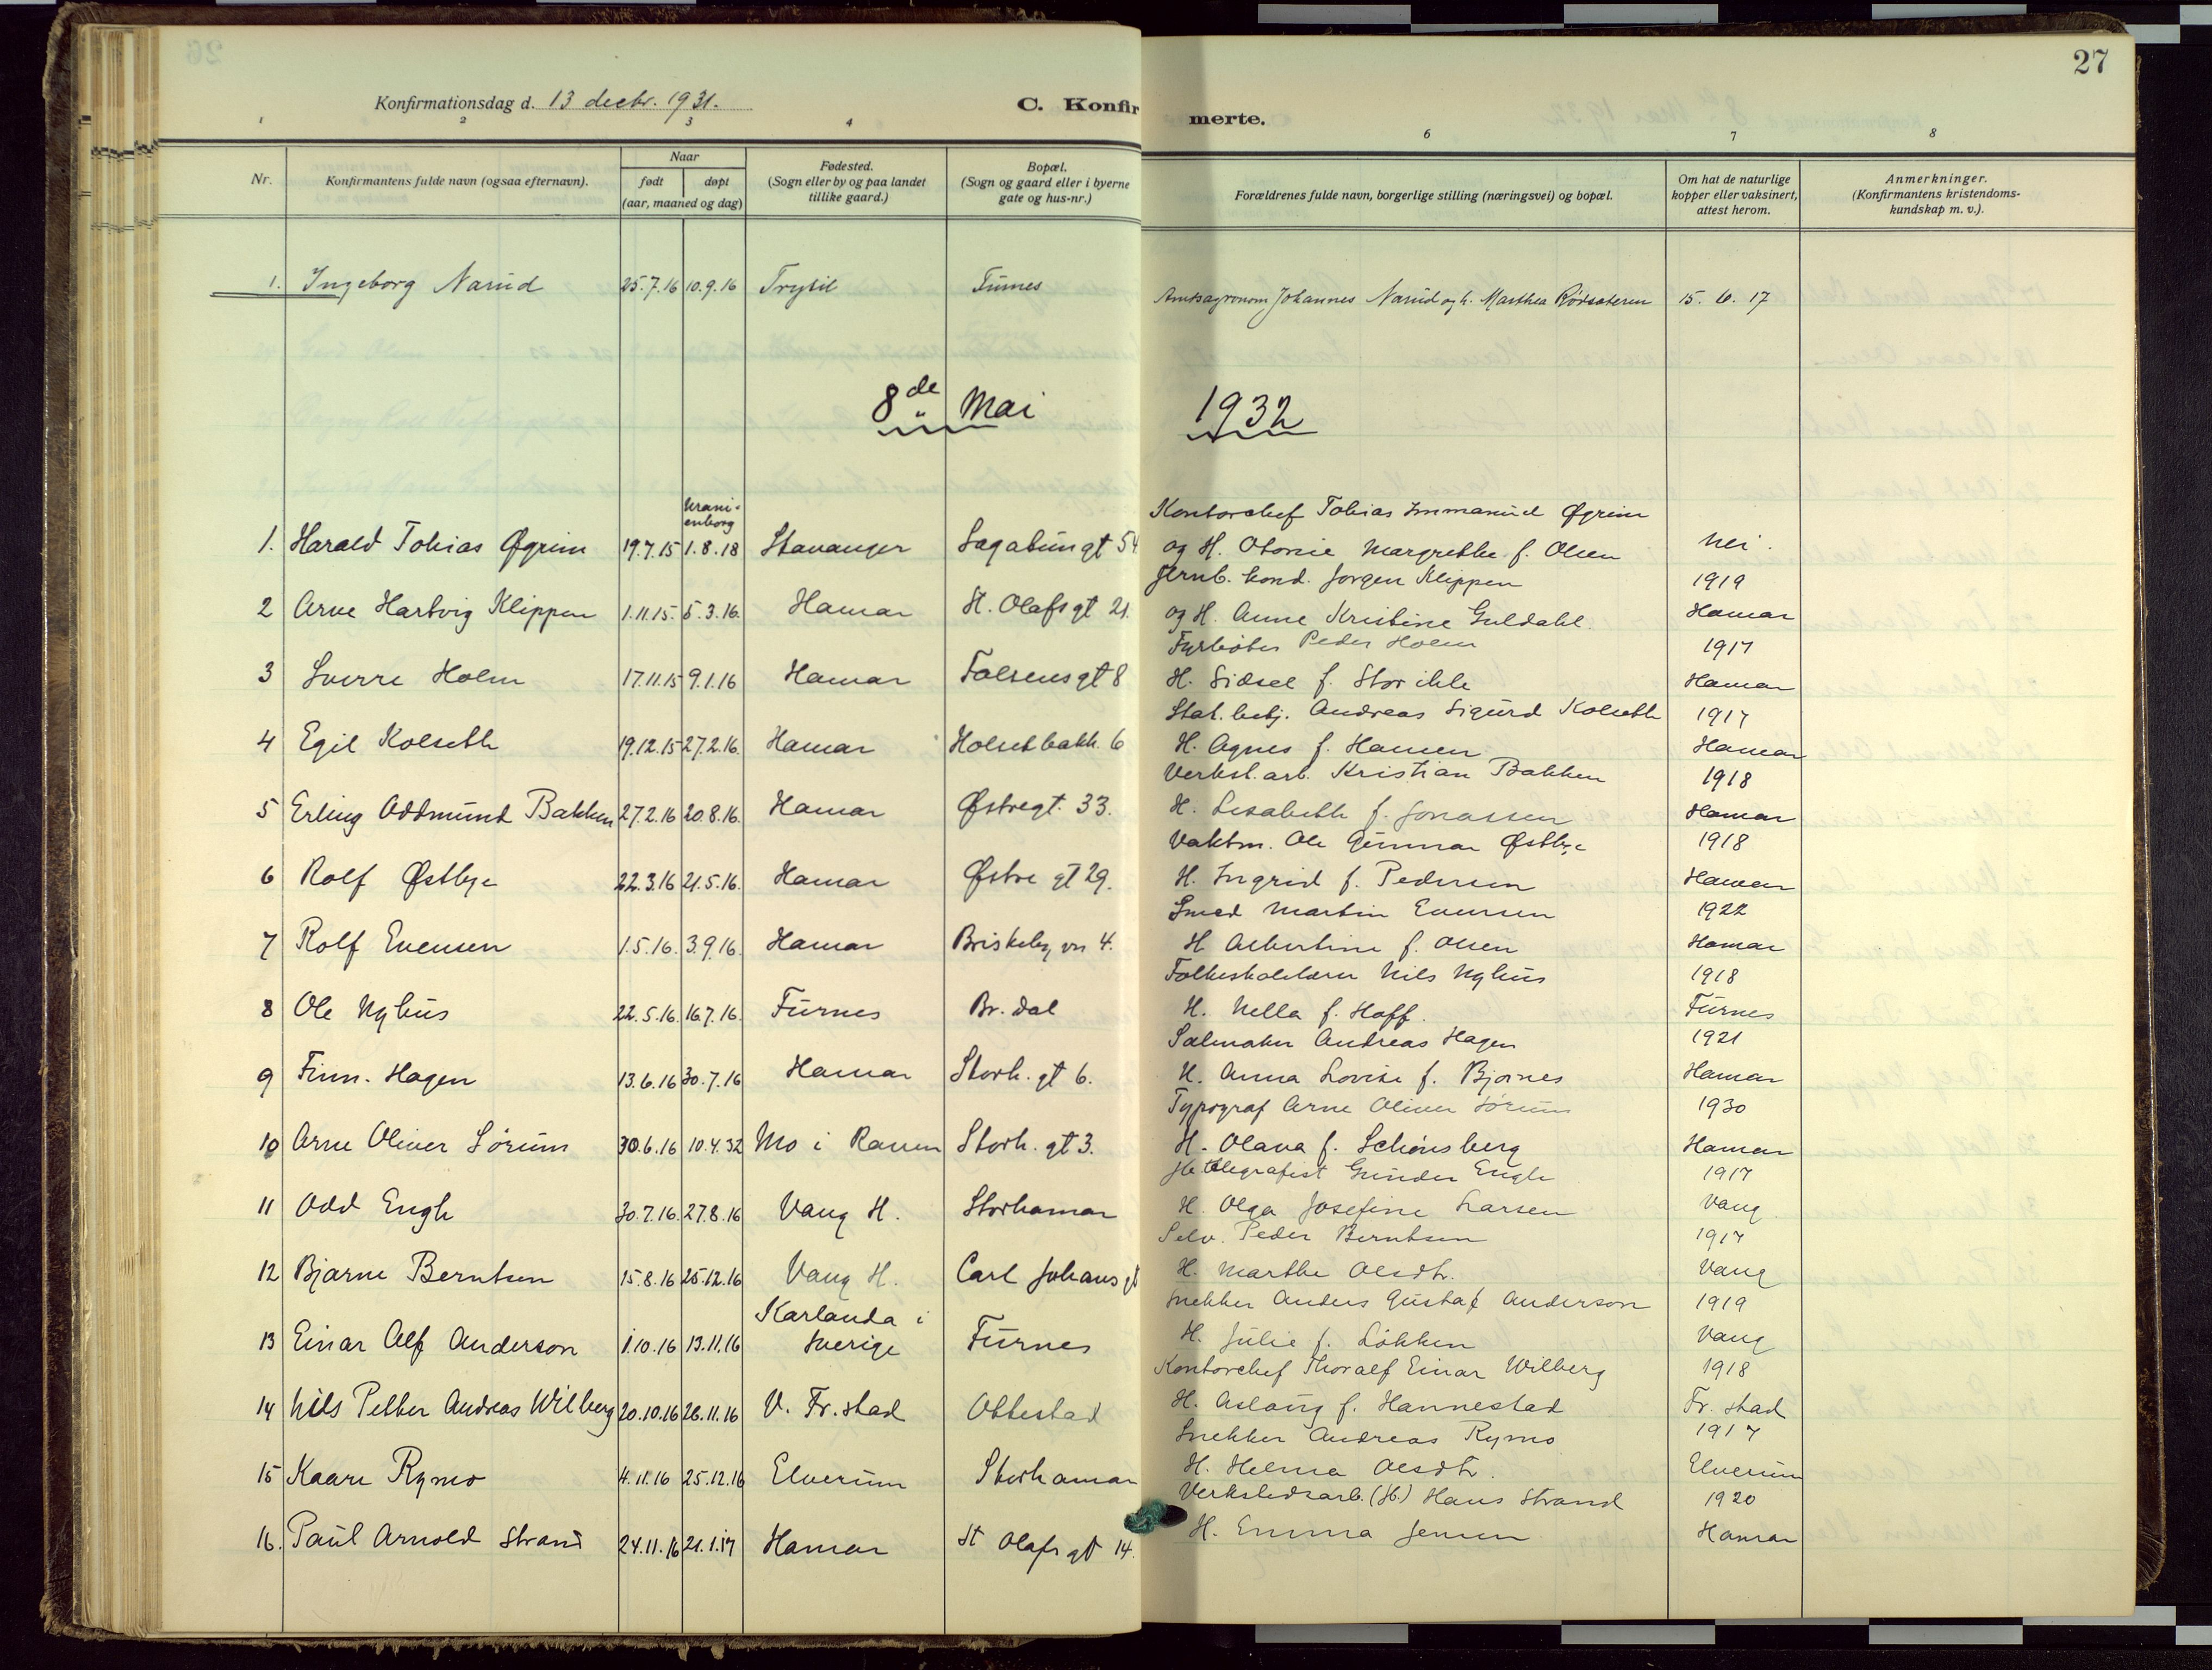 27
Konfirmationsdag d. 13 decbr. 1931.
C. Konfirmerte.
1 2 3 4 6 7 8
Nr. Konfirmantens fulde navn (ogsaa efternavn). Naar født døpt (aar, maaned og dag) Fødested. (Sogn eller by og paa landet tillike gaard.) Bopæl. (Sogn og gaard eller i byerne gate og hus-nr.) Forældrenes fulde navn, borgerlige stilling (næringsvei) og bopæl. Om hat de naturlige kopper eller vaksinert, attest herom. Anmerkninger. (Konfirmantens kristendoms-kundskap m. v.).
1. Ingeborg Narud 25.7.16 10.9.16 Trysil Furnes Amtsagronom Johannes Narud og h. Marthea Rödsæteren 15. 6. 17
8de Mai 1932
Urani-enborg
Kontorchef Tobias Immanuel Øgrim
1. Harald Tobias Øgrim 19.7.15 1.8.18 Stavanger Sagatungt 54 og H. Otonie Margrethe f. Olsen Nei.
Jernb. kond. Jørgen Klippen 1919
2 Arne Hartvig Klippen 1.11.15. 5.3.16. Hamar St. Olafsgt 21. og H. Anne Kristine Guldahl. Hamar
Fyrbøter Peder Holm 1917
3 Sverre Holm 17.11.15 9.1.16 Hamar Falsensgt 8 H. Sidsel f. Storihle Hamar
Stat. betj. Andreas Sigurd Kolseth 1917
4 Egil Kolseth 19.12.15 27.2.16. Hamar Holsetbakk. 6 H. Agnes f. Hansen Hamar
Verkst. arb. Kristian Bakken 1918
5 Erling Oddmund Bakken 27.2.16 20.8.16. Hamar Østregt. 33. H. Lisabeth f. Jonassen Hamar
Vaktm. Ole Gunnar Østbye 1918
6 Rolf Østbye 22.3.16 21.5.16. Hamar Østre gt 29. H. Ingrid f. Pedersen Hamar
Smed Martin Evensen 1922
7 Rolf Evensen 1.5.16. 3.9.16. Hamar Briskeby vn 4. H Albertine f. Olsen Hamar
Folkeskolelærer Nils Nyhus 1918
8 Ole Nyhus 22.5.16. 16.7.16. Furnes Br. dal H. Nella f. Hoff. Furnes
Salmaker Andreas Hagen 1921
9 Finn. Hagen 13.6.16 30.7.16 Hamar Storh. gt 6. H. Anna Lovise f. Bjørnes Hamar
Typograf Arne Oliver Sørum 1930
10 Arne Oliver Sørum 30.6.16 10.4.32 Mo i Ranen Storh. gt 3. H. Olava f. Schønsberg Hamar
telegrafist Gunder Engh 1917
11 Odd Engh 30.7.16. 27.8.16 Vang H. Storhamar H. Olga Josefine Larsen Vang
Selv. Peder Berntsen 1917
12 Bjarne Berntsen 15.8.16 25.12.16 Vang H. Carl Johans gt H. Marthe Olsdtr. Vang
Snekker Anders Gustaf Anderson 1919
13 Einar Alf Anderson 1.10.16 13.11.16 Karlanda i Sverige Furnes H. Julie f. Løkken Vang
Kontorchef Thoralf Einar Wilberg 1918
14 Nils Petter Andreas Wilberg 20.10.16 26.11.16 V. Fr.stad Ottestad H. Aslaug f. Hannestad Fr. stad
Snekker Andreas Rymo 1917
15 Kaare Rymo 4.11.16 25.12.16 Elverum Storhamar H. Helma Olsdtr. Elverum
Verkstedsarb. (H.) Hans Strand 1920
16. Paul Arnold Strand 24.11.16 21.1.17 Hamar St Olafs gt 14. H. Emma Jensen Hamar